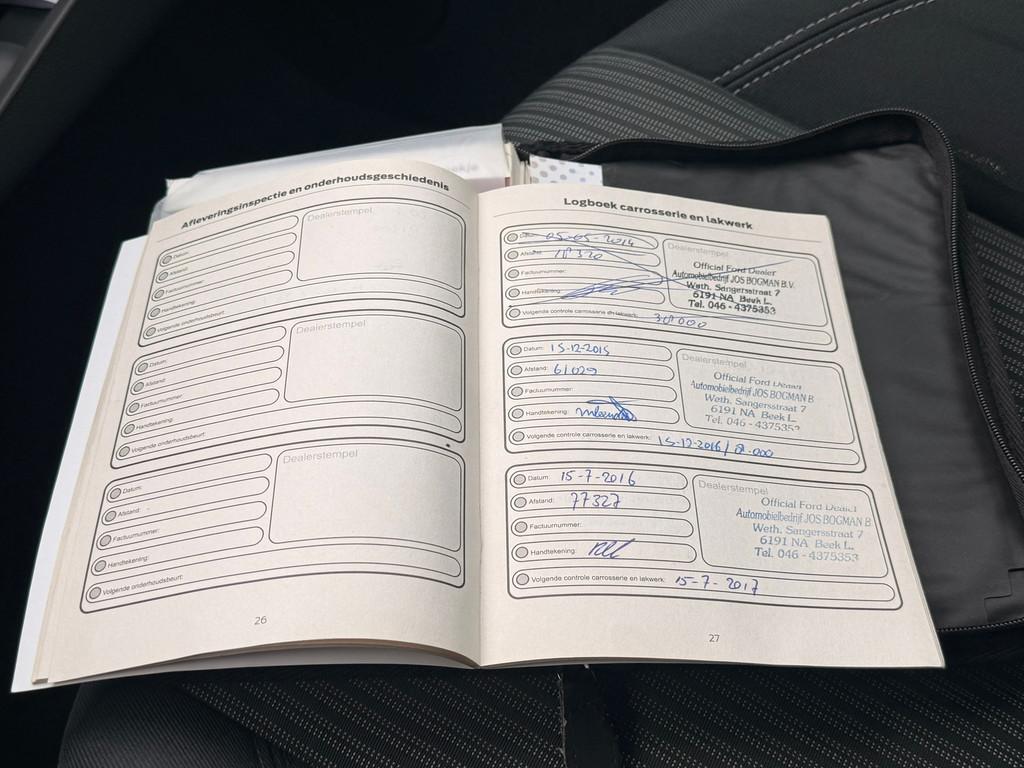 Afleveringsinspectie en onderhoudsgeschiedenis
Dealerstempel
Datum:
Afstand:
Factuurnummer:
Handtekening:
Volgende onderhoudsbeurt:
Dealerstempel
Datum:
Afstand:
Factuurnummer:
Handtekening:
Volgende onderhoudsbeurt:
Dealerstempel
Datum:
Afstand:
Factuurnummer:
Handtekening:
Volgende onderhoudsbeurt:
26
Logboek carrosserie en lakwerk
Datum: 05-05-2014
Afstand: 18320
Factuurnummer:
Handtekening:
Volgende controle carrosserie en lakwerk: 38000
Dealerstempel
Official Ford Dealer
Automobielbedrijf JOS BOGMAN B.V.
Weth. Sangersstraat 7
6191 NA Beek L.
Tel. 046 - 4375353
Datum: 15-12-2015
Afstand: 61029
Factuurnummer:
Handtekening:
Volgende controle carrosserie en lakwerk: 15-12-2016 /
Dealerstempel
Official Ford Dealer
Automobielbedrijf JOS BOGMAN B
Weth. Sangersstraat 7
6191 NA Beek L.
Tel. 046 - 4375353
Datum: 15-7-2016
Afstand: 77327
Factuurnummer:
Handtekening:
Volgende controle carrosserie en lakwerk: 15-7-2017
Dealerstempel
Official Ford Dealer
Automobielbedrijf JOS BOGMAN B
Weth. Sangersstraat 7
6191 NA Beek L.
Tel. 046 - 4375353
27